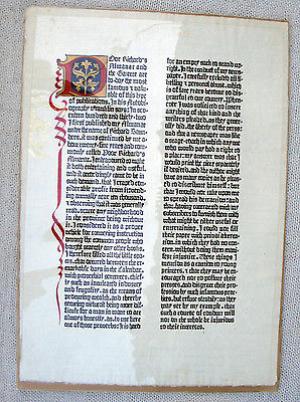 Poor Richard's
Almanac and
the Gazette are
to-day the most
famous & valu-
able of this type
of publications. In his Autobi-
ography Franklin says: In
I first published my Almanac
under the name of Richard Saun-
ders, it was continued by me
called Poor Richard's
Almanac. I endeavoured to make
it both entertaining and useful,
and it accordingly came to be in
such demand, that I reap'd con-
siderable profit from it, vend-
ing annually near ten thousand.
And observing that it was generally
read, scarce any neighborhood
in the province being without
it, I considered it as a proper
vehicle for conveying instruction
among the common people who
bought scarcely any other books;
I therefore filled all the little spaces
that occurred between the remark-
able days in the calendar
with proverbial sentences, chiefly
such as inculcated industry
and frugality, as the means of
procuring wealth, and thereby
securing virtue; it being more diffi-
cult for a man in want to act
always honestly, as, to use here
one of those proverbs, it is hard
for an empty sack to stand up-
right. In the conduct of my news-
paper, I carefully excluded all li-
belling & personal abuse, which
is of late years become so dis-
graceful to our country. Whene-
ver I was solicited to insert
anything of that kind and the
writers pleaded, as they gener-
ally did, the liberty of the press,
and that a newspaper was like
a stage-coach in which any one
who would pay had a right to
a place; my answer was, that I
would print the piece separately
if desired, and the author might
have as many copies as he pleas-
ed to distribute himself, but
that I would not take upon me
to spread his detraction; and
that, having contracted with my
subscribers to furnish them with
what might be either useful or
entertaining, I could not fill
their papers with private alterca-
tion, in which they had no con-
cern, without doing them mani-
fest injustice. These things I
mention as a caution to young
printers, & that they may be en-
couraged not to pollute their
presses, and disgrace their pro-
fession by such infamous practi-
ces, but refuse steadily; as they
may see by my example, that
such a course of conduct will
not on the whole be injurious
to their interests.